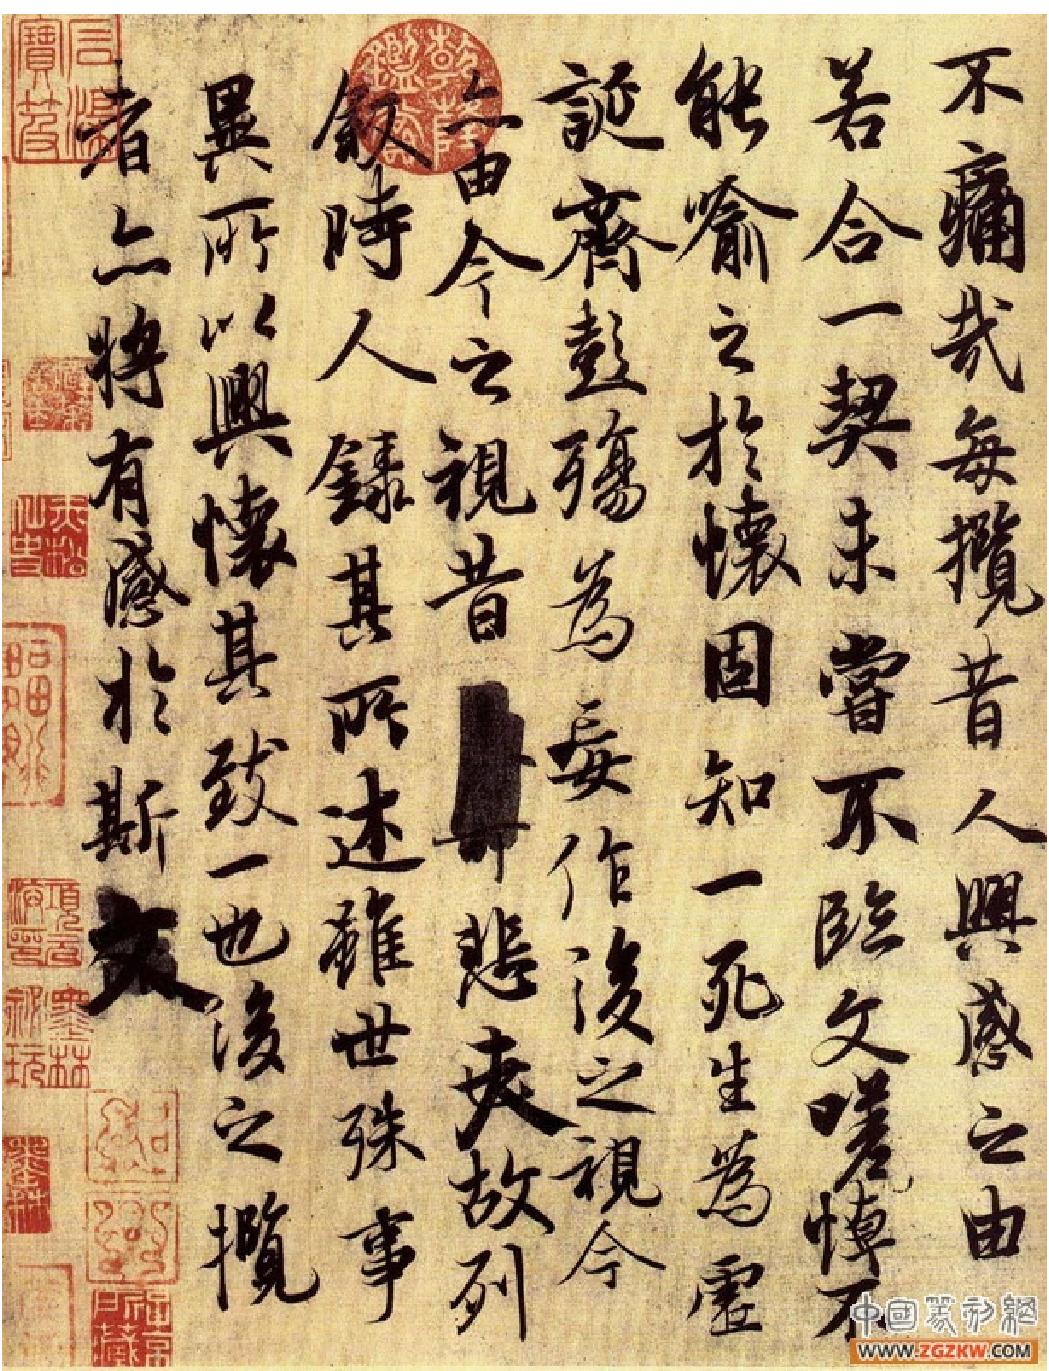 不痛哉每攬昔人興感之由
若合一契未嘗不臨文嗟悼不
能喻之於懷固知一死生為虛
誕齊彭殤為妄作後之視今
亦由今之視昔 悲夫故列
敘時人錄其所述雖世殊事
異所以興懷其致一也後之攬
者亦將有感於斯文
乾隆鑑賞
項元
墨林
秘玩
墨林
中國篆刻網
www.ZGZKW.com